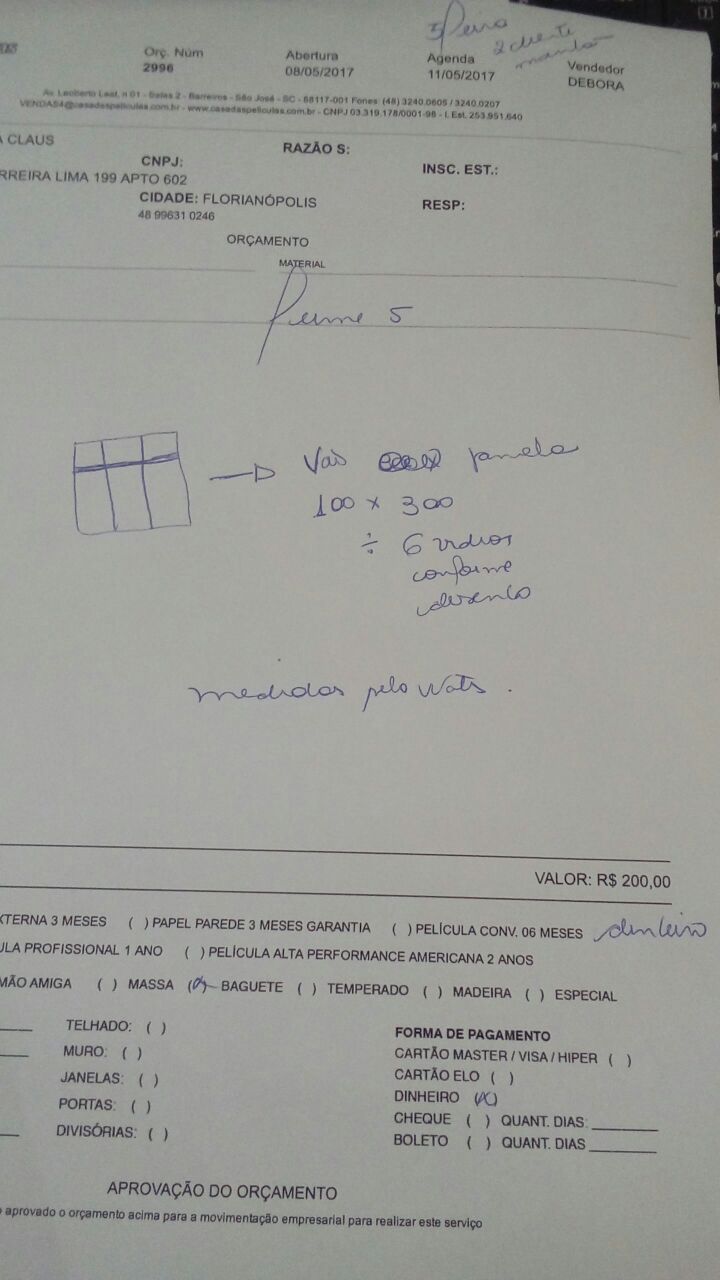 3ª feira
2 cliente
manhã
Orç. Núm Abertura Agenda Vendedor
2996 08/05/2017 11/05/2017 DEBORA
Av. Leoberto Leal, n 01 - Salas 2 - Barreiros - São José - SC - 88117-001 Fones: (48) 3240.0605 / 3240.0207
VENDAS4@casadaspeliculas.com.br - www.casadaspeliculas.com.br - CNPJ 03.319.178/0001-98 - I. Est. 253.951.640
A CLAUS RAZÃO S:
CNPJ: INSC. EST.:
RREIRA LIMA 199 APTO 602
CIDADE: FLORIANÓPOLIS RESP:
48 99631 0246
ORÇAMENTO
MATERIAL
Fume 5
Vão janela
100 x 300
÷ 6 vidros
conforme
desenho
medidas pelo Wats.
VALOR: R$ 200,00
XTERNA 3 MESES ( ) PAPEL PAREDE 3 MESES GARANTIA ( ) PELÍCULA CONV. 06 MESES dinheiro
ULA PROFISSIONAL 1 ANO ( ) PELÍCULA ALTA PERFORMANCE AMERICANA 2 ANOS
MÃO AMIGA ( ) MASSA (X) BAGUETE ( ) TEMPERADO ( ) MADEIRA ( ) ESPECIAL
TELHADO: ( )
MURO: ( )
JANELAS: ( )
PORTAS: ( )
DIVISÓRIAS: ( )
FORMA DE PAGAMENTO
CARTÃO MASTER / VISA / HIPER ( )
CARTÃO ELO ( )
DINHEIRO (X)
CHEQUE ( ) QUANT. DIAS:
BOLETO ( ) QUANT. DIAS
APROVAÇÃO DO ORÇAMENTO
o aprovado o orçamento acima para a movimentação empresarial para realizar este serviço